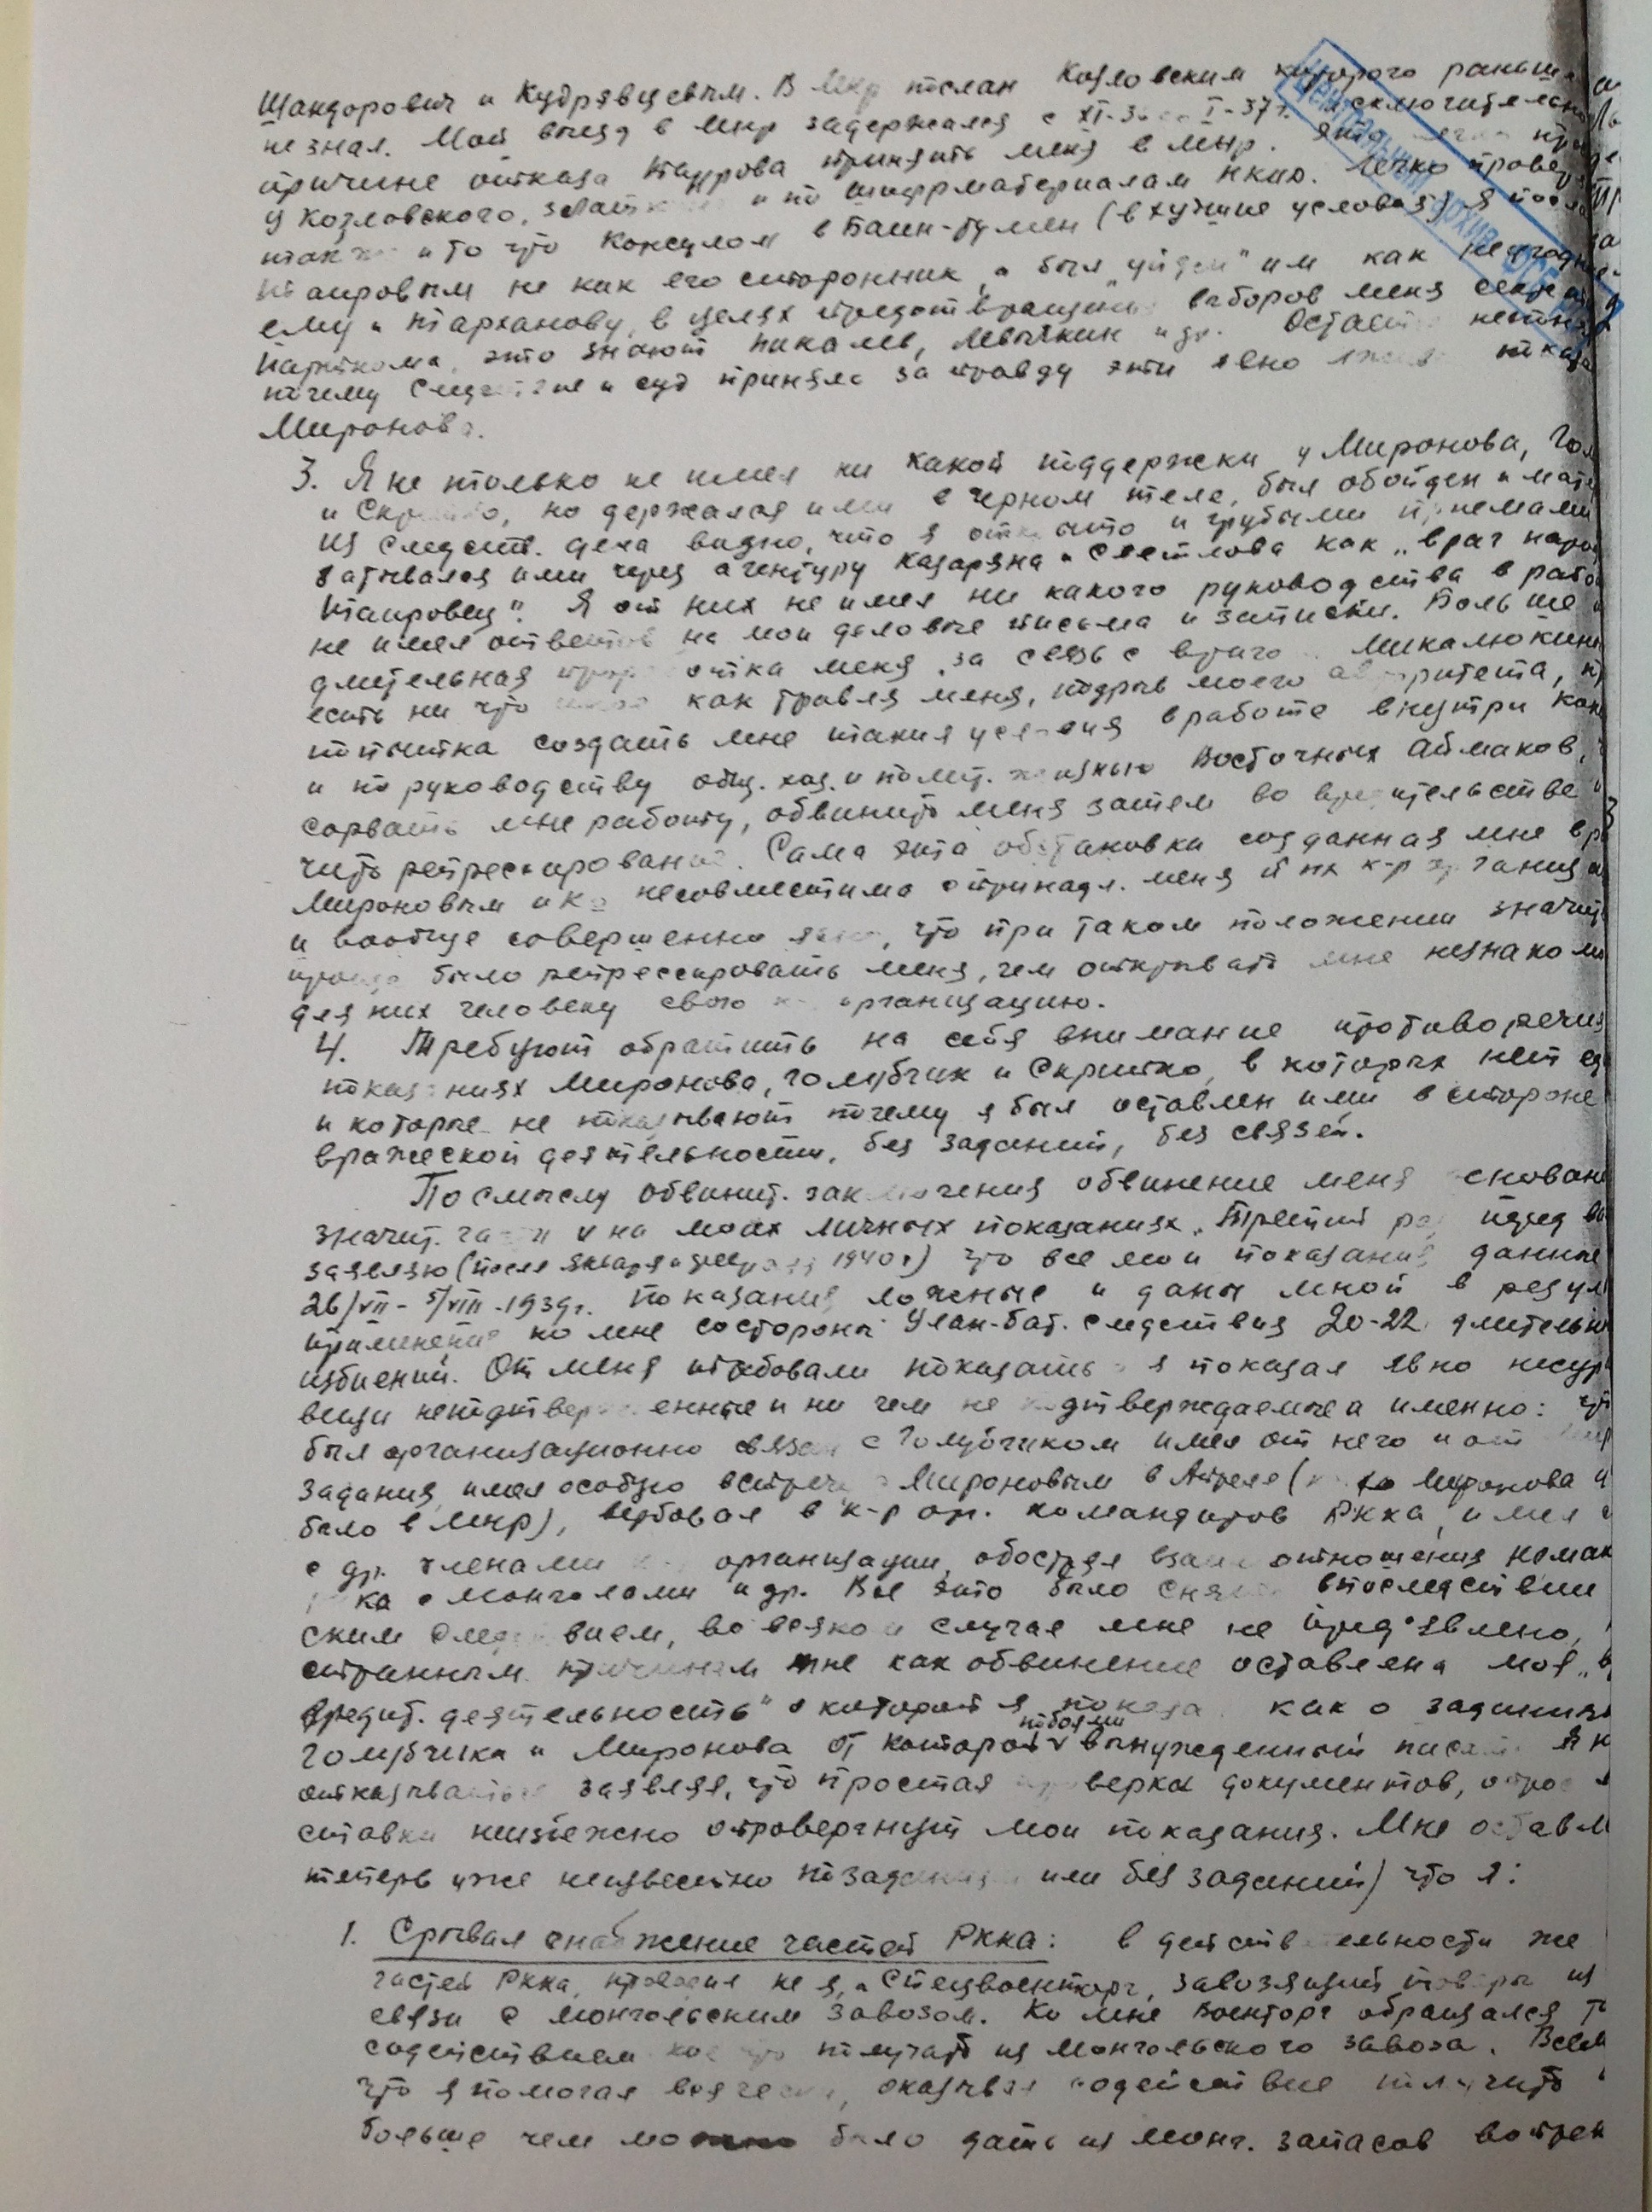 Шандорович и Кудрявцевым. В мнр послан Козловским которого раньше
не знал. Мой выезд в мнр задержался с XI-36 по I-37г. исключительно
причине отказа Таирова принять меня в мнр. Легко провер
у Козловского, и по шифрматериалам нкид.
и то что консулом в Баин-Тумен (в худшие условия) я посла
Таировым не как его сторонник, а был „уйден" им как неугодн
ему и Тарханову, в целях предотвращения выборов меня секрет
парткома, это знают Никалев, Левыкин и др. Остаетс непоня
почему следствие и суд приняло за правду эти явно показа
Миронова.
3. Я не только не имел ни какой поддержки у Миронова, Гол
и Скрипко, но держался ими в черном теле, был обойден и мате
Из следств. дела видно, что я открыто и грубыми приемами
батывался ими через агентуру Казаряна и Светлова как „враг народ
Таировец". Я от них не имел ни какого руководства в рабо
не имел ответов на мои деловые письма и записки. Больше
длительная проработка меня за связь с врагом Микалюкины
есть ни что иное как травля меня, подрыв моего авторитета,
попытка создать мне такие условия в работе внутри кон
и по руководству общ. хоз. и полит. жизнью Восточных аймаков,
сорвать мне работу, обвинить меня затем во вредительстве и
чить репрессирование. Сама эта обстановка созданная мне
Мироновым и Ко несовместима с принадл. меня к их к-р организац
и вообще совершенно ясно, что при таком положении значит
проще было репрессировать меня, чем открывать мне незнаком
для них человеку свою организацию.
4. Требуют обратить на себя внимание противоречия
показаниях Миронова, Голубчик и Скрипко, в которых нет ед
и которые не показывают почему я был оставлен ими в стороне
вражеской деятельности, без заданий, без связей.
По смыслу обвинит. заключения обвинение меня основан
значит. части и на моих личных показаниях. Третий раз перед ва
заявляю (после января и февраля 1940г) что все мои показания данные
26/VII - 5/VIII - 1939г. показания ложные и даны мной в резул
применения ко мне со стороны Улан-Бат. следствия 20-22 длительн
избиений. От меня требовали показать и я показал явно несур
вещи неподтвержденные и ни чем не подтверждаемые а именно: что
был организационно связан с Голубчиком имел от него и от
задания, имел особую встречу с Мироновым в Апреле ( Миронова
было в мнр), вербовал в к-р ор. командиров РККА, имел
с др. членами организации, обострял взаимоотношения
ка с монголами и др. Все это было снято впоследствии
ским следствием, во всяком случае мне не пред'явлено,
странным причинам мне как обвинение оставлена моя „
вредит. деятельность" о которой я показал как о задания
Голубчика и Миронова от которой побоями вынужденный писать Я н
отказываться заявляя, что простая проверка документов,
ставки неизбежно опровергнут мои показания. Мне оставл
теперь уже неизвестно по заданию или без заданий) что я:
1. Срывал снабжение частей РККА: в действительности же
частей РККА, проводил не я, а Спецвоенторг, завозящий товары из
связи с монгольским завозом. Ко мне Военторг обращался
содействием кое что получать из Монгольского завоза. Всем
что я помогал всячески, оказывал содействие получить
больше чем можно было дать из монг. запасов